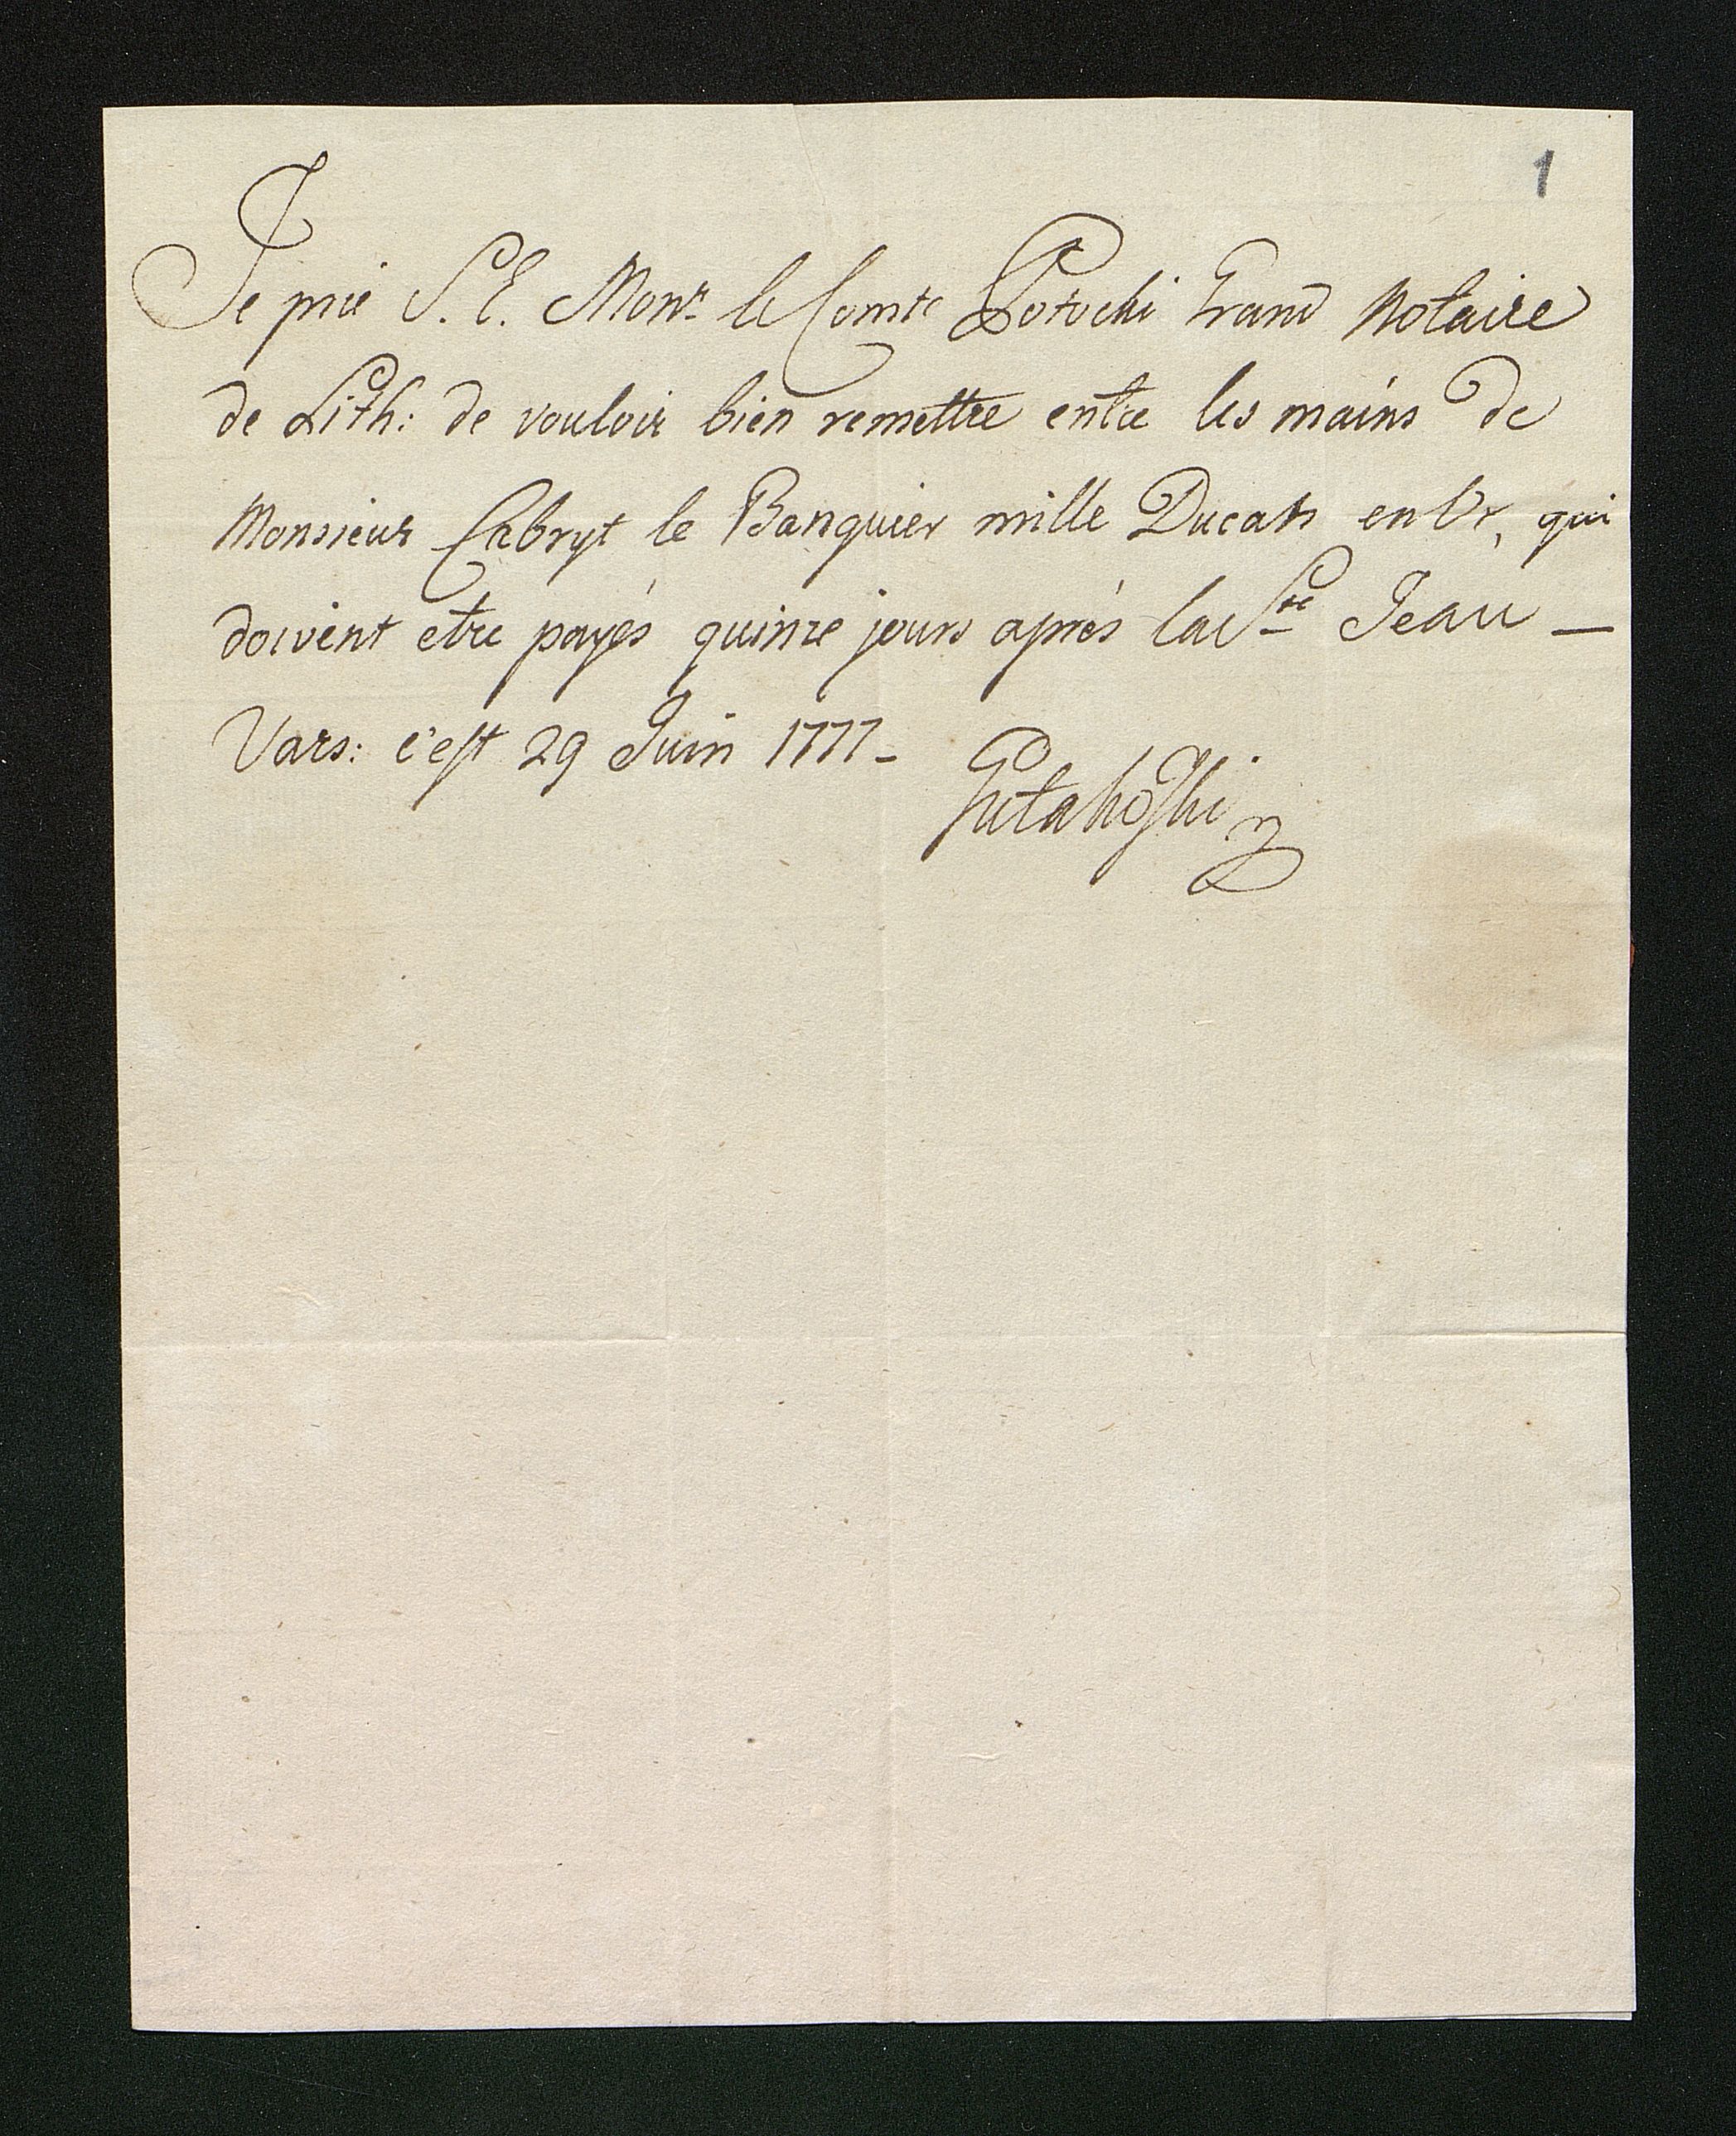 1
Je prie S. E. Monr. le Comte Potocki Grand Notaire
de Lith: de vouloir bien remettre entre les mains de
Monsieur Cabryt le Banquier mille Ducats en Or, qui
doivent etre payés quinze jours après la Ste Jean —
Vars: c'est 29 Juin 1777 -